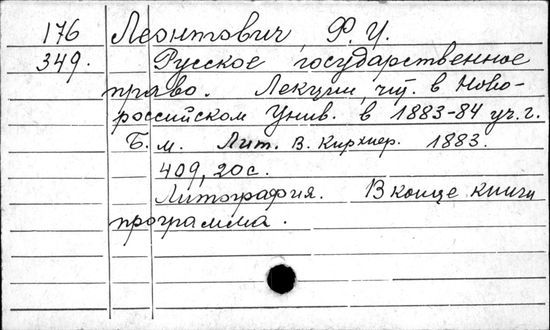 176 Леонтович, Ф. И.
349. Русское государственное
право. Лекции, чит. в Ново-
российском Унив. в 1883-84 уч. г.
Б. м. Лит. В. Кирхнер. 1883.
409, 20 с.
Литография. В конце книги
программа.